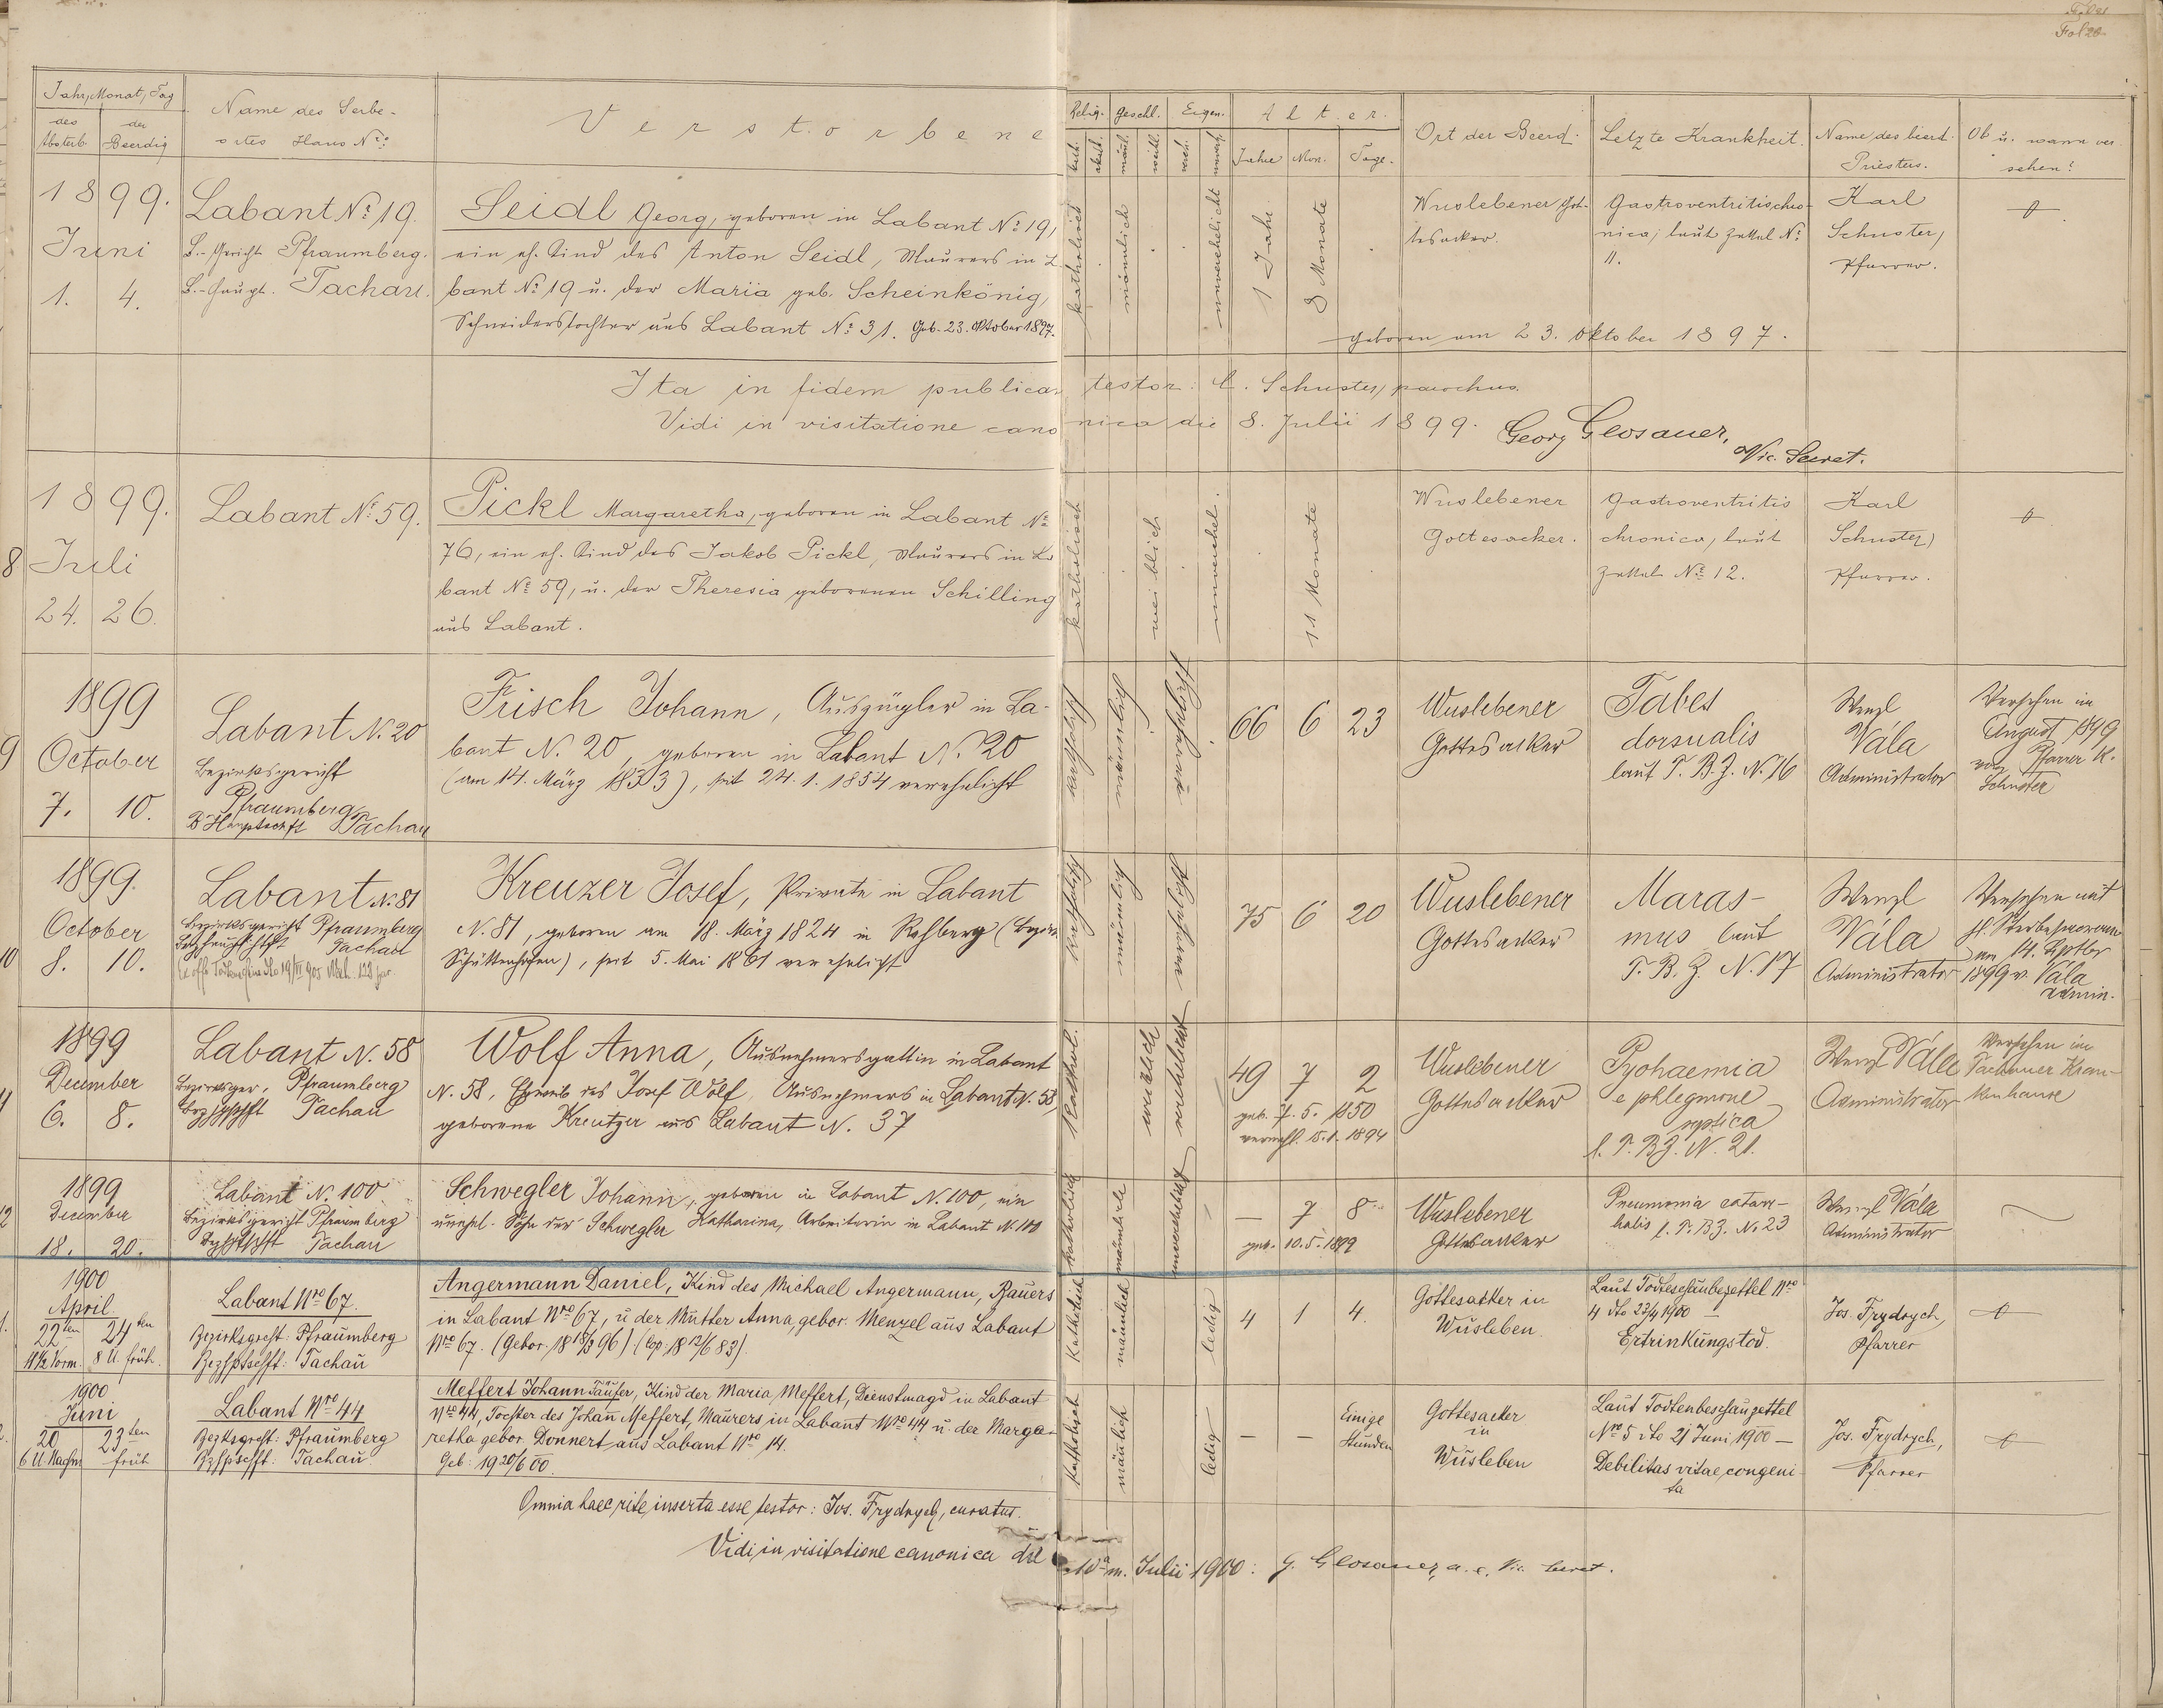 Fol 20
Jahr, Monat, Tag
des Absterb.
der Beerdig
Name des Serbe-
ortes Haus No:
Verstorbene
Relig.
Geschl.
Eigen.
Alter.
kath.
akath.
männl.
weibl.
vereh.
unver.
Jahre
Mon.
Tage.
Ort der Beerd.
Letzte Krankheit.
Name des beerd.
Priesters.
Ob u. wann ver-
sehen?
1899.
Juni
1. 4.
Labant No 19.
B.-Gericht Pfraumberg.
B.-Haupt. Tachau.
Seidl Georg, geboren in Labant No 19,
ein eh. Kind des Anton Seidl, Maurers in La
bant No 19 u. der Maria geb. Scheinkönig,
Schneiderstochter aus Labant No 31. Geb. 23. Oktober 1897.
katholisch
männlich
unverehelicht
1 Jahr
8 Monate
Wuslebener Got-
tesacker.
Gastroventritischro-
nica, laut Zettel No
11.
Karl
Schuster,
Pfarrer.
geboren am 23. Oktober 1897.
Ita in fidem publicam testor: C. Schuster, parochus.
Vidi in visitatione canonica die 8. Julii 1899. Georg Glosauer,
Vic. Secret.
8
1899.
Juli
24. 26.
Labant No 59.
Pickl Margaretha, geboren in Labant No
76, ein eh. Kind des Jakob Pickl, Maurers in La
bant No 59, u. der Theresia geborenen Schilling
aus Labant.
katholisch
weiblich
unverehel.
11 Monate
Wuslebener
Gottesacker.
Gastroventritis
chronica, laut
Zettel No 12.
Karl
Schuster,
Pfarrer.
9
1899
October
7. 10.
Labant N. 20
Bezirksgericht
Pfraumberg
B Hauptschft Tachau
Frisch Johann, Auszügler in La-
bant N. 20, geboren in Labant N. 20
(am 14. März 1833), seit 24. 1. 1854 verehelicht
katholisch
männlich
verehelicht
66 6 23
Wuslebener
Gottesacker
Tabes
dorsualis
laut T. B. Z. N. 16
Wenzl
Vála
Administrator
Versehen im
August 1899
von Pfarrer K.
Schuster
10
1899.
October
8. 10.
Labant N. 81
Bezirksgericht Pfraumberg
Tachau
Kreuzer Josef, Private in Labant
N. 81, geboren am 18. März 1824 in Rehberg (Bezirk
Schüttenhofen), seit 5. Mai 1861 verehelicht
katholisch
männlich
verehelicht
75 6 20
Wuslebener
Gottesacker
Maras-
mus laut
T. B. Z. N. 17
Wenzl
Vála
Administrator
Versehen mit
hl. Sterbesacram
am 14. Sptbr
1899 v. Vála
admin.
11
1899
December
6. 8.
Labant N. 58
Bezirksger. Pfraumberg
Bezhptschft Tachau
Wolf Anna, Ausnehmersgattin in Labant
N. 58, Eheweib des Josef Wolf, Ausnehmers in Labant N. 58,
geborene Kreutzer aus Labant N. 37
kathol.
weiblich
verehelicht
49 7 2
geb. 7. 5. 1850
verehl. 15. 1. 1894
Wuslebener
Gottesacker
Pyohaemia
e phlegmone
septica
l. T. B Z. N. 21.
Wenzl Vála
Administrator
Versehen im
Tachauer Kran-
kenhause
12
1899
December
18. 20.
Labant N. 100
Bezirksgericht Pfraumberg
Bezhptschft Tachau
Schwegler Johann, geboren in Labant N. 100, ein
unehel. Sohn der Schwegler Katharina, Arbeiterin in Labant N. 100
katholisch
männlich
unverehelicht
— 7 8
geb. 10. 5. 1899
Wuslebener
Gottesacker
Pneumonia catarr-
halis l. T. B Z. N. 23
Wenzl Vála
Administrator
1.
1900
April
22ten 24ten
11½ Vorm. 8 U. früh.
Labant Nro 67.
Bezirksgrcht: Pfraumberg
Bezhptschft: Tachau
Angermann Daniel, Kind des Michael Angermann, Bauers
in Labant Nro 67, u der Mutter Anna, gebor. Menzel aus Labant
Nro 67. (Gebor. 18 18/3 96) (Cop. 18 12/6 83).
Katholisch
männlich
ledig
4 1 4.
Gottesacker in
Wusleben.
Laut Todteschaubezettel Nro
4 dto 23/4 1900 —
Ertrinkungstod.
Jos. Frydrych,
Pfarrer
2.
1900
Juni
20 23ten
6 U. Nachm früh
Labant Nro 44
Bezrksgrcht: Pfraumberg
Bzhptschft: Tachau
Meffert Johann Täufer, Kind der Maria Meffert, Dienstmagd in Labant
Nro 44, Tochter des Johan Meffert, Maurers in Labant Nro 44 u. der Marga-
retha gebor. Donnert aus Labant Nro 14.
Geb: 19 20/6 00.
Katholisch
männlich
ledig
— — Einige
Stunden
Gottesacker
in
Wusleben
Laut Todtenbeschauzettel
Nro 5 dto 21 Juni 1900 —
Debilitas vitae congeni-
ta
Jos. Frydrych,
Pfarrer
Omnia haec rite inserta esse testor: Jos. Frydrych, curatus.
Vidi in visitatione canonica die 10a m. Julii 1900: G. Glosauer, a. c. Vic. Secret.